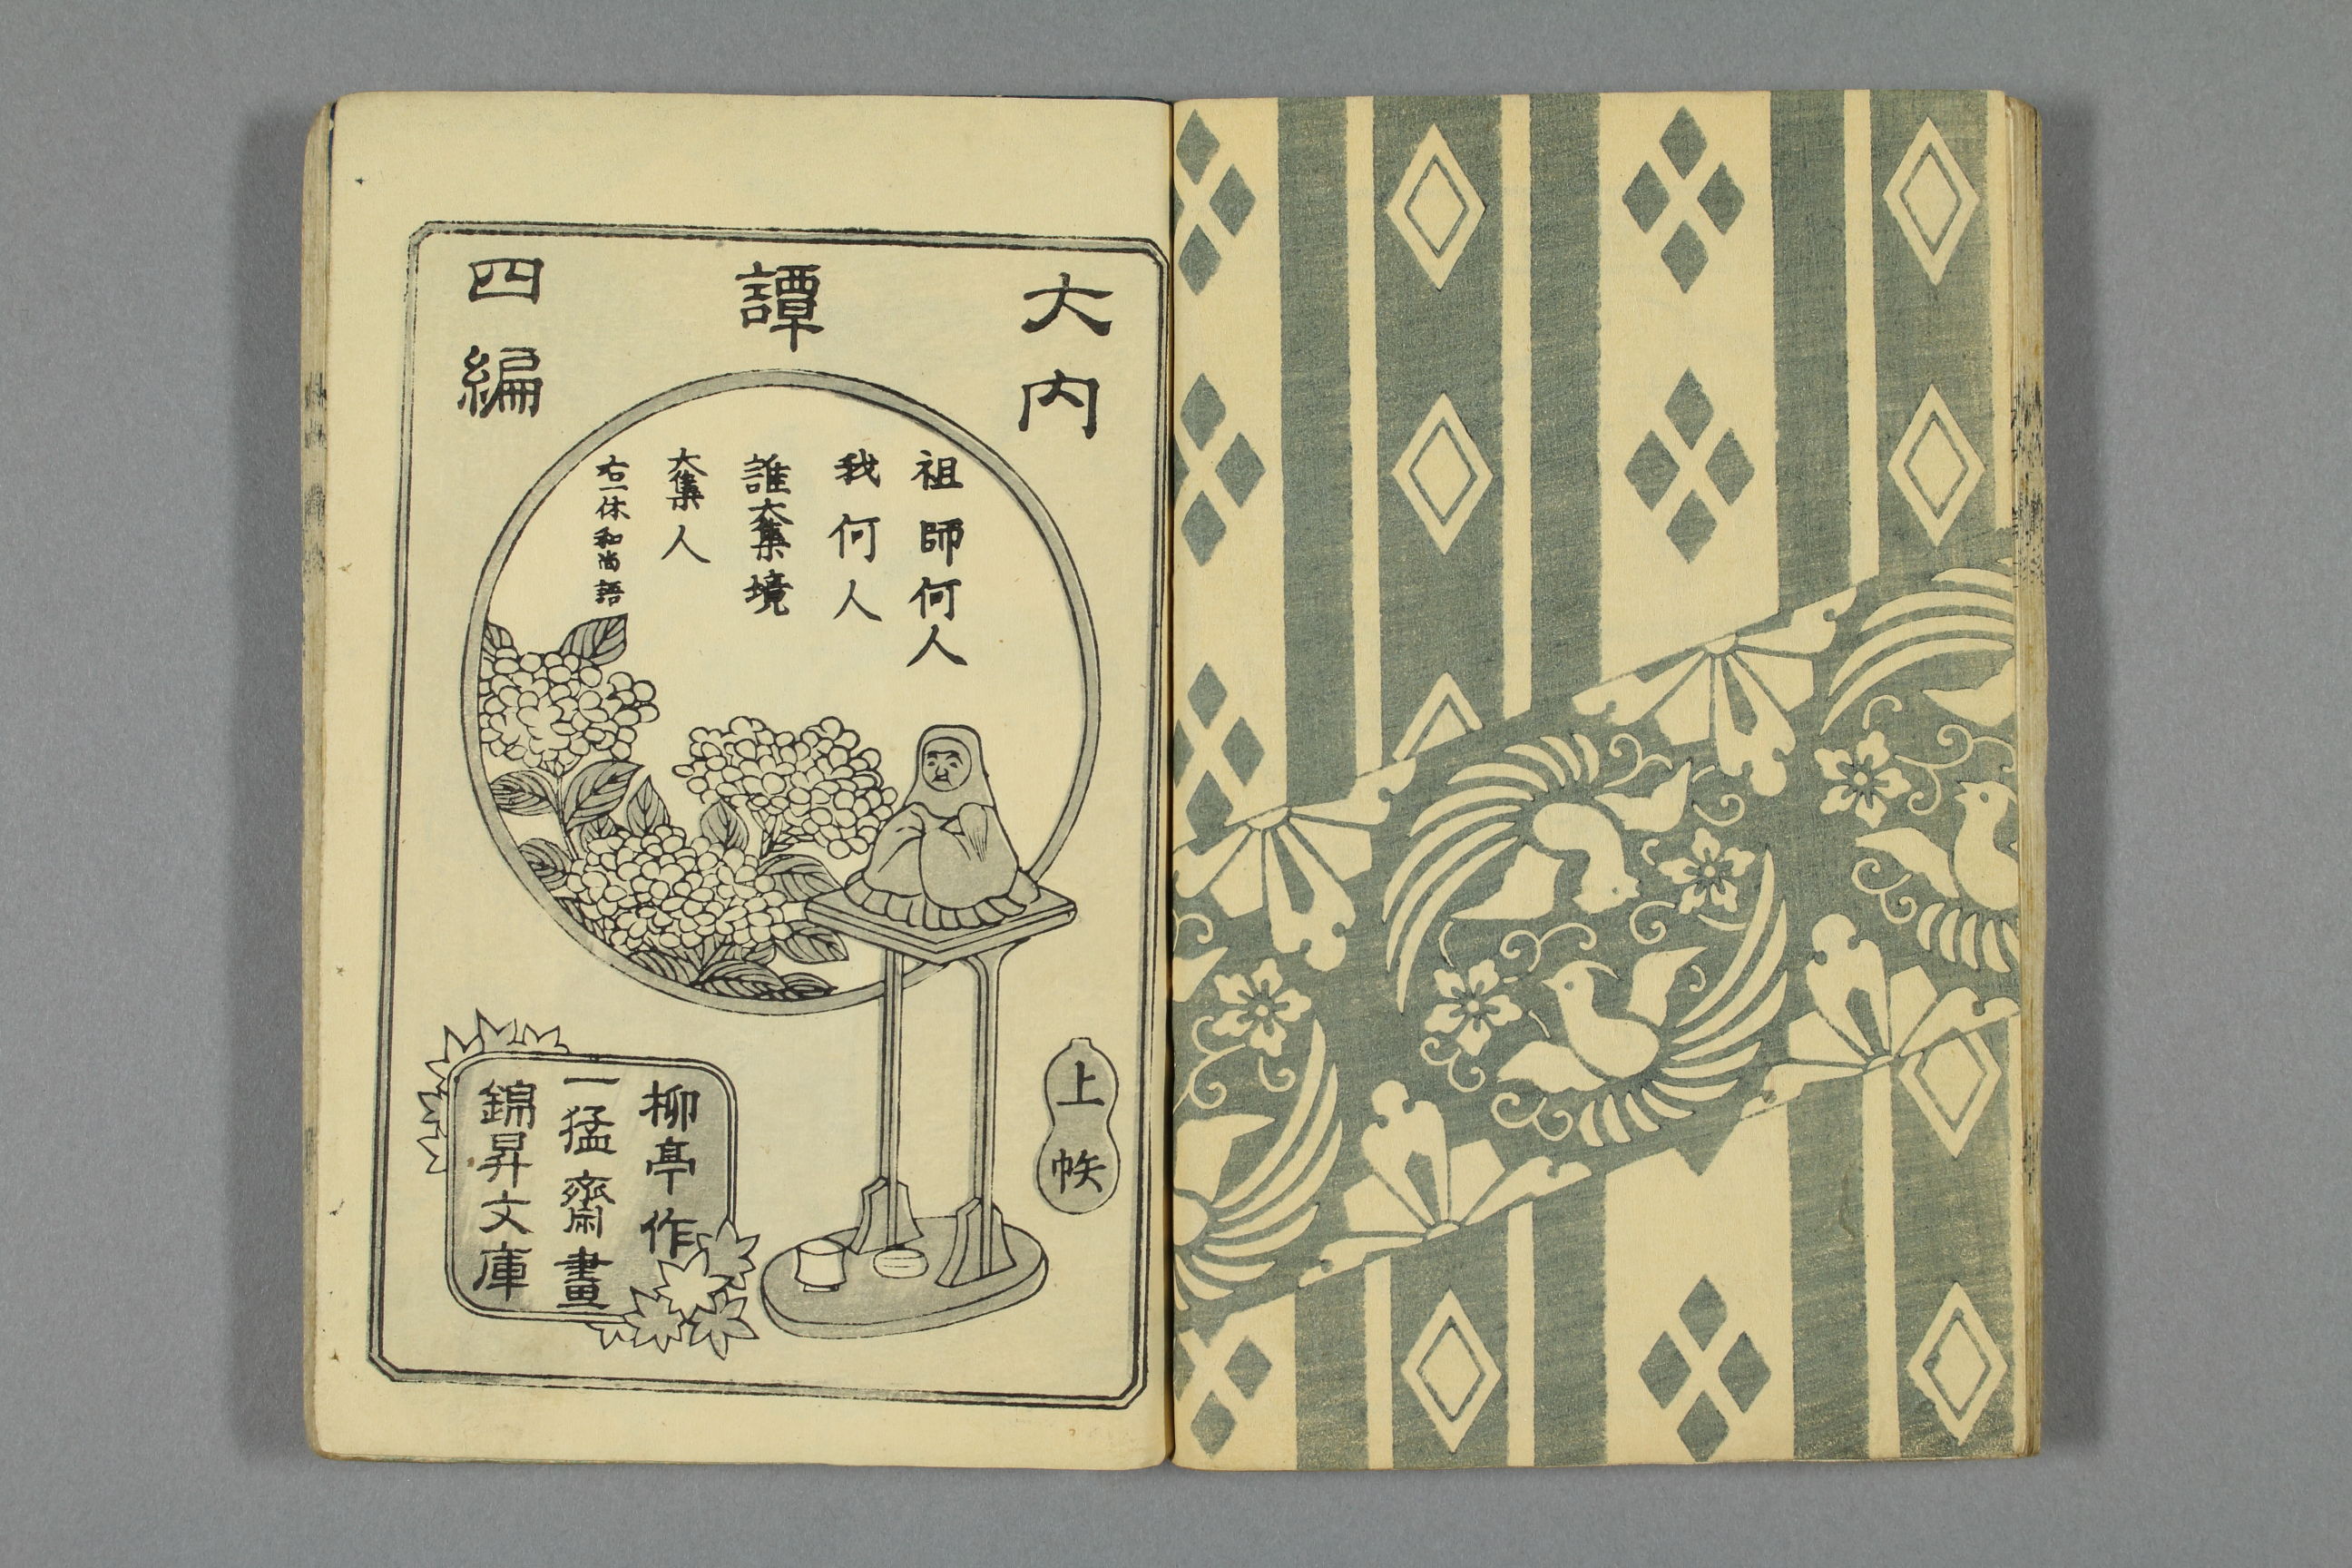 大内
譚
四編
祖師何人
我何人
誰奪境
奪人
右一休和尚語
上帙
柳亭作
一猛齋畫
錦昇文庫